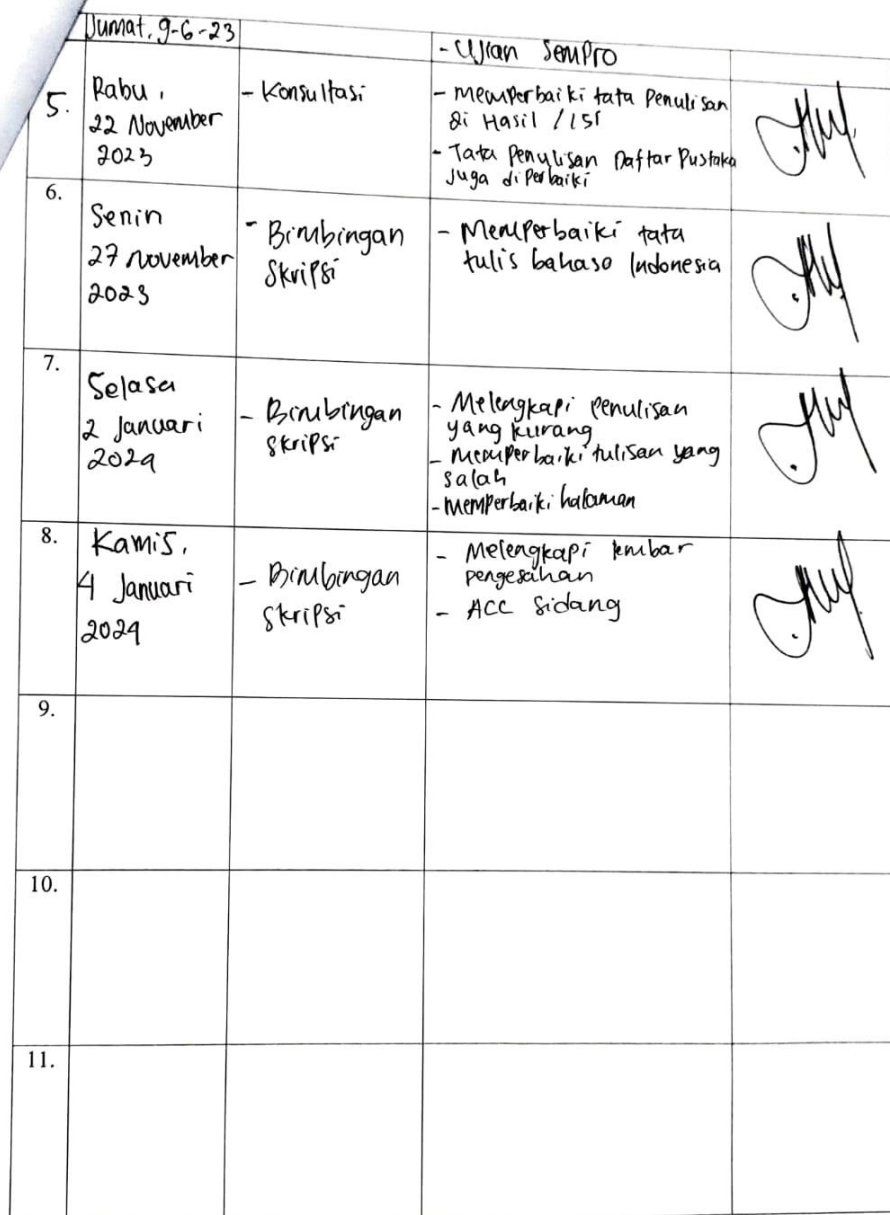 Jumat, 9-6-23
- Ujian Sempro
5.
Rabu,
22 November
2023
- Konsultasi
- Memperbaiki tata Penulisan
di Hasil / ISI
- Tata Penulisan Daftar Pustaka
Juga diperbaiki
6.
Senin
27 November
2023
- Bimbingan
Skripsi
- Memperbaiki tata
tulis bahasa Indonesia
7.
Selasa
2 Januari
2024
- Bimbingan
Skripsi
- Melengkapi Penulisan
yang kurang
- Memperbaiki tulisan yang
salah
- Memperbaiki halaman
8.
Kamis,
4 Januari
2024
- Bimbingan
Skripsi
- Melengkapi lembar
pengesahan
- ACC Sidang
9.
10.
11.